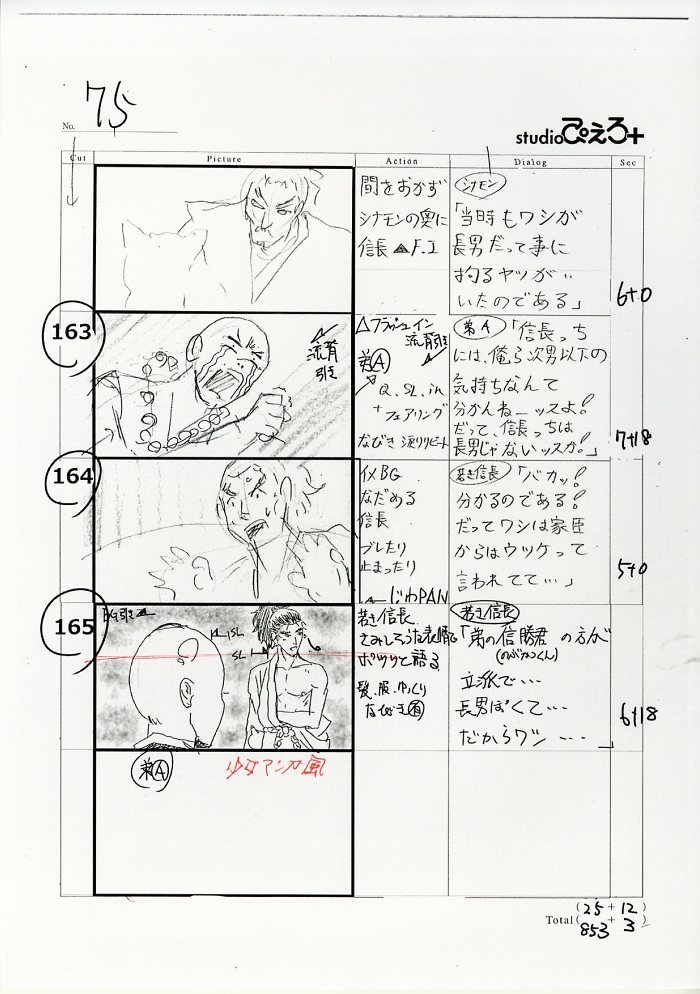 No. 75
studioぴえろ+
Cut Picture Action Dialog Sec
間をおかず
シナモンの奥に
信長 F.I
シナモン
「当時もワシが
長男だって事に
拘るヤツが‥
いたのである」
6+0
163
流背
引き
フラッシュイン
流背引き
弟A
Q.SL.in
+フェアリング
なびき 涙リピート
弟A 「信長っち
には、俺ら次男以下の
気持ちなんて
分かんねーッスよ!
だって、信長っちは
長男じゃないッスか!」
7+18
164
イメBG
なだめる
信長
ブレたり
止まったり
じわPAN
若き信長 「バカッ!
分かるのである!
だってワシは家臣
からはウツケって
言われてて…」
5+0
165
BG引き
SL
SL
若き信長
さみしそうな表情で
ポツリと語る
髪、服、ゆっくり
なびき有
若き信長
「弟の信勝君 の方が
(のぶかつくん)
立派で…
長男ぽくて…
だからワシ…」
6+18
弟A
少女マンガ風
(25+12)
Total (853+3)